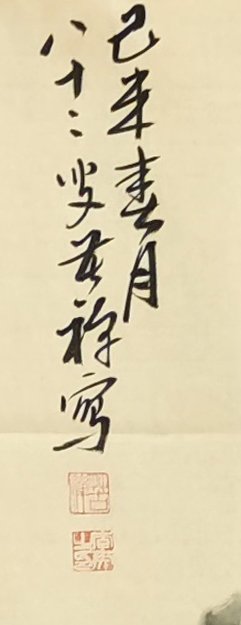 己未春月
八十二叟苦禅寫